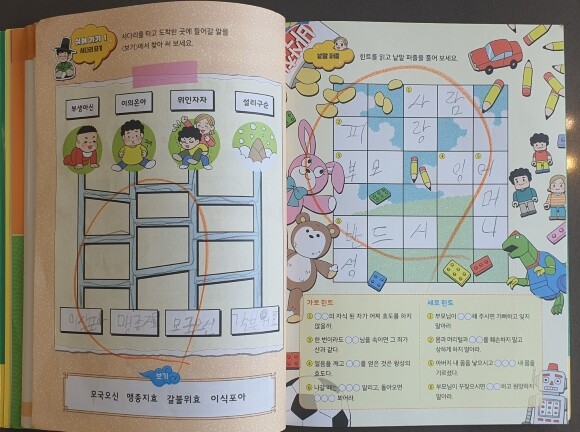 실력 가기 1
사다리 타기
사다리를 타고 도착한 곳에 들어갈 말을
<보기>에서 찾아 써 보세요.
부생아신
이의온아
위인자자
설리구순
보기
모국오신 맹종지효 갈불위효 이식포아
낱말 퍼즐
힌트를 읽고 낱말 퍼즐을 풀어 보세요.
① 사 람
② 피 랑
③ 부 모 ④ 임 ⑤ 머
머
⑥ 반 드 시 니
성
가로 힌트
① ○○의 자식 된 자가 어찌 효도를 하지
않을까.
③ 한 번이라도 ○○님을 속이면 그 죄가
산과 같다.
④ 얼음을 깨고 ○○를 얻은 것은 왕상의
효도다.
⑥ 나갈 때는 ○○○ 알리고, 돌아오면
○○○ 뵈어라.
세로 힌트
① 부모님이 ○○해 주시면 기뻐하고 잊지
말아라.
② 몸과 머리털과 ○○를 훼손하지 말고
상하게 하지 말아라.
⑤ 아버지 내 몸을 낳으시고 ○○○ 내 몸을
기르셨다.
⑥ 부모님이 꾸짖으시면 ○○하고 원망하지
말아라.